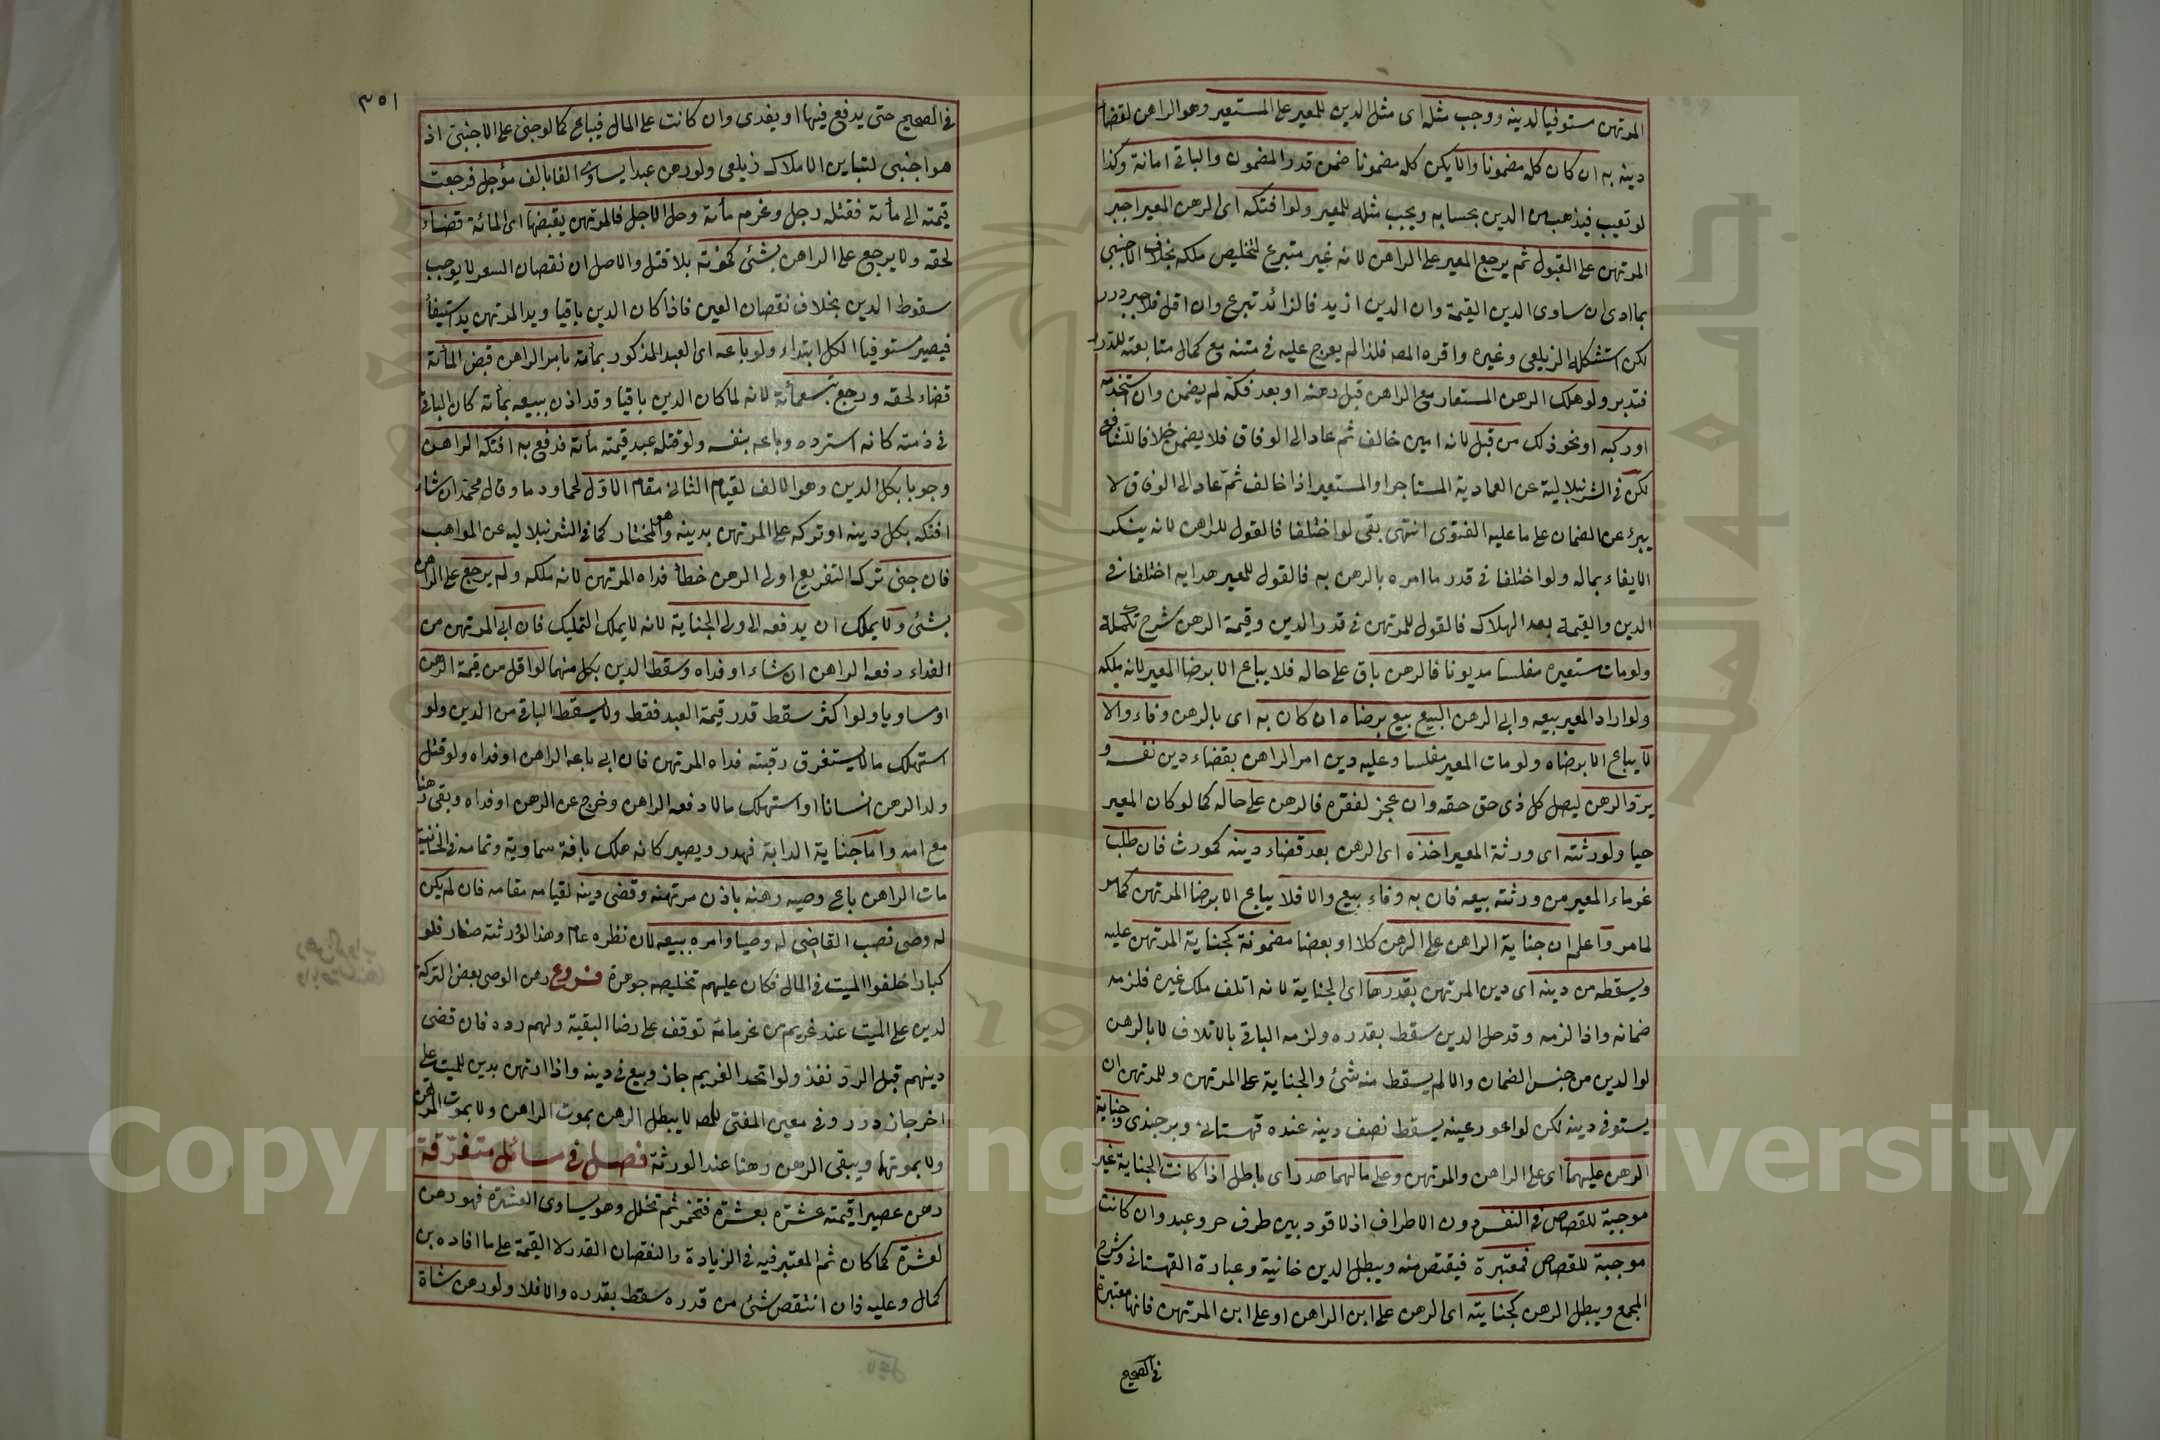 المرتهن مستوفيا لدينه ووجب مثله اى مثل الدين للمعير على المستعير وهو الراهن لقضاء
دينه به ان كان كله مضمونا والا يكن كله مضمونا ضمن قدر المضمون والباقى امانة وكذا
لو تعيب فيذهب من الدين بحسابه ويجب مثله للمعير ولو افتكه اى الرهن المعير اجبر
المرتهن على القبول ثم يرجع المعير على الراهن لانه غير متبرع لتخليص ملكه بخلاف الاجنبى
بما ادى ان ساوى الدين القيمة وان الدين ازيد فالزائد تبرع وان اقل فلا جبر درر
لكن استشكله الزيلعى وغيره واقره المص فلذا لم يعرج عليه فى متنه مع كمال متابعته للدرر
فتدبر ولو هلك الرهن المستعار مع الراهن قبل رهنه او بعد فكه لم يضمن وان استخدمه
او ركبه او نحو ذلك من قبل لانه امين خالف ثم عاد الى الوفاق فلا يضمن خلافا للشافعى
لكن فى الشرنبلالية عن العمادية المستاجر او المستعير اذا خالف ثم عاد الى الوفاق لا
يبرئ عن الضمان على ما عليه الفتوى انتهى بقى لو اختلفا فالقول للراهن لانه ينكر
الايفاء بماله ولو اختلفا فى قدر ما امره بالرهن به فالقول للمعير هدايه اختلفا فى
الدين والقيمة بعد الهلاك فالقول للمرتهن فى قدر الدين وقيمة الرهن شرح تكملة
ولو مات مستعيره مفلسا مديونا فالرهن باق على حاله فلا يباع الا برضا المعير لانه ملكه
ولو اراد المعير بيعه وابى الرهن البيع بيع برضاه ان كان به اى بالرهن وفاء والا
لا يباع الا برضاه ولو مات المعير مفلسا وعليه دين امر الراهن بقضاء دين نفسه و
يرد الرهن ليصل كل ذى حق حقه وان عجز لفقره فالرهن على حاله كما لو كان المعير
حيا ولورثته اى ورثة المعير اخذه اى الرهن بعد قضاء دينه كمورث فان طلب
غرماء المعير من ورثته بيعه فان به وفاء بيع والا فلا يباع الا برضا المرتهن كما مر
لما مر واعلم ان جناية الراهن على الرهن كلا او بعضا مضمونة كجناية المرتهن عليه
ويسقط من دينه اى دين المرتهن بقدرها اى الجناية لانه اتلف ملك غيره فلزمه
ضمانه واذا لزمه وقد حل الدين سقط بقدره ولزمه الباقى بالاتلاف لا بالرهن
لو الدين من جنس الضمان والا لم يسقط منه شئ والجناية على المرتهن وللمرتهن ان
يستوفى دينه لكن لو اعور عينه يسقط نصف دينه عنده قهستانى وبرجندى وجناية
الرهن عليهما اى على الراهن والمرتهن وعلى مالهما هدر اى باطل اذا كانت الجناية غير
موجبة للقصاص فى النفس دون الاطراف اذ لا قود بين طرف حر وعبد وان كانت
موجبة للقصاص فمعتبرة فيقتص منه ويبطل الدين خانية وعبارة القهستانى وشرح
المجمع ويبطل الرهن كجنايته اى الرهن على ابن الراهن او على ابن المرتهن فانها معتبرة
فى الصحيح
٣٥١
فى الصحيح حتى يدفع فيها او يفدى وان كانت على المال فيباع كما لو جنى على الاجنبى اذ
هو اجنبى لتباين الاملاك زيلعى ولو رهن عبدا يساوى الفا بالف مؤجل فرجعت
قيمته الى مأئة فقتله رجل وغرم مأئة وحل الاجل فالمرتهن يقبضها اى المائة قضاء
لحقه ولا يرجع على الراهن بشئ كموته بلا قتل والاصل ان نقصان السعر لا يوجب
سقوط الدين بخلاف نقصان العين فاذا كان الدين باقيا ويد المرتهن يد استيفأ
فيصير مستوفيا الكل ابتداء ولو باعه اى العبد المذكور بمأئة بامر الراهن قبض المأئة
قضاء لحقه ورجع بتسعمأئة لانه لما كان الدين باقيا وقد اذن ببيعه بمأئة كان الباقى
فى ذمته كانه استرده وباعه بنفسه ولو قتله عبد قيمته مأئة فدفع به افتكه الراهن
وجوبا بكل الدين وهو الالف لقيام الثانى مقام الاول لحما ودما وقال محمد ان شاء
افتكه بكل دينه او تركه على المرتهن بدينه وهو المختار كما فى الشرنبلاليه عن المواهب
فان جنى ترك التفريع اولى الرهن خطأ فداه المرتهن لانه ملكه ولم يرجع على الراهن
بشئ ولا يملك ان يدفعه الى ولى الجناية لانه لا يملك التمليك فان ابى المرتهن من
الفداء دفعه الراهن ان شاء او فداه وسقط الدين بكل منهما لو اقل من قيمة الرهن
او مساويا ولو اكثر سقط قدر قيمة العبد فقط ولا يسقط الباقى من الدين ولو
استهلك مالا يستغرق رقبته فداه المرتهن فان ابى باعه الراهن او فداه ولو قتل
ولد الرهن انسانا او استهلك مالا دفعه الراهن وخرج عن الرهن او فداه وبقى رهنا
مع امه واما جناية الدابة فهدر ويصير كانه هلك بافة سماوية وتمامه فى الخانية
مات الراهن باع وصيه رهنه باذن مرتهنه وقضى دينه لقيامه مقامه فان لم يكن
له وصى نصب القاضى له وصيا وامره ببيعه لان نظره عام وهذا لو ورثته صغار فلو
كبارا خلفوا الميت فى المال فكان عليهم تخليصه جوهرة فروع رهن الوصى بعض التركة
لدين على الميت عند غريم من غرمائه توقف على رضا البقية ولهم رده فان قضى
دينهم قبل الرد نفذ ولو اتحد الغريم جاز وبيع فى دينه واذا ارتهن بدين للميت على
اخر جاز درر وفى معين المفتى للمص لا يبطل الرهن بموت الراهن ولا بموت المرتهن
ولا بموتهما ويبقى الرهن رهنا عند الورثة فصل فى مسائل متفرقة
رهن عصيرا قيمته عشرة بعشرة فتخمر ثم تخلل وهو يساوى العشرة فهو رهن
لعشرة كما كان ثم المعتبر فيه فى الزيادة والنقصان القدر لا القيمة على ما افاده بن
كمال وعليه فان انتقص شئ من قدره سقط بقدره والا فلا ولو رهن شاة
Copyright © King Saud University